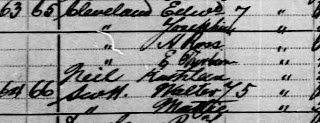 63 65 Cleveland Edwd 7 "
" Josephine "
" A Ross "
" E "
Neil Kathleen "
64 66 Scott Walter 75 "
" Mattie "